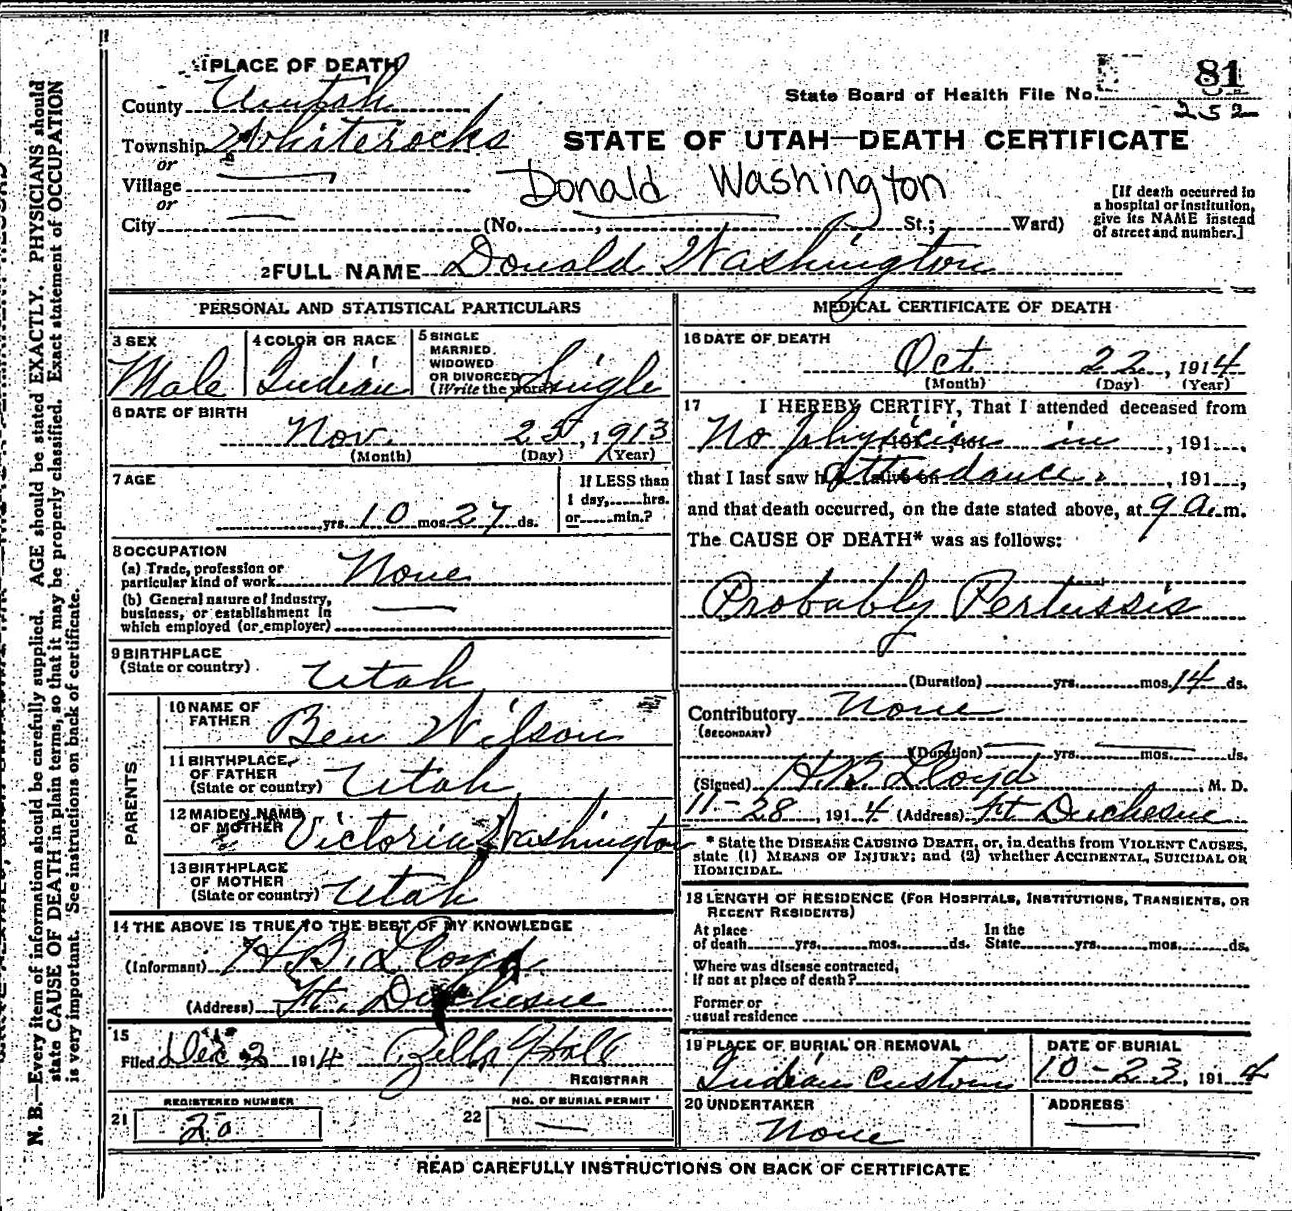 1 PLACE OF DEATH
County Uintah
Township Whiterocks
or
Village
or
City (No. , St.; Ward)
State Board of Health File No. 81
252
STATE OF UTAH—DEATH CERTIFICATE
Donald Washington
[If death occurred in
a hospital or institution,
give its NAME instead
of street and number.]
2 FULL NAME Donald Washington
PERSONAL AND STATISTICAL PARTICULARS
3 SEX
Male
4 COLOR OR RACE
Indian
5 SINGLE
MARRIED
WIDOWED
OR DIVORCED
(Write the word) Single
6 DATE OF BIRTH
Nov. 25, 1913
(Month) (Day) (Year)
7 AGE
yrs. 10 mos. 27 ds.
If LESS than
1 day, hrs.
or min.?
8 OCCUPATION
(a) Trade, profession or
particular kind of work None
(b) General nature of Industry,
business, or establishment in
which employed (or employer)
9 BIRTHPLACE
(State or country) Utah
PARENTS
10 NAME OF
FATHER Ben Wilson
11 BIRTHPLACE
OF FATHER
(State or country) Utah
12 MAIDEN NAME
OF MOTHER Victoria Washington
13 BIRTHPLACE
OF MOTHER
(State or country) Utah
14 THE ABOVE IS TRUE TO THE BEST OF MY KNOWLEDGE
(Informant) H.B. Lloyd
(Address) Ft. Duchesne
15
Filed Dec 2 1914
REGISTRAR
REGISTERED NUMBER
21 20
NO. OF BURIAL PERMIT
22
MEDICAL CERTIFICATE OF DEATH
16 DATE OF DEATH
Oct. 22, 1914
(Month) (Day) (Year)
17 I HEREBY CERTIFY, That I attended deceased from
No physician in , 191 ,
that I last saw h alive on attendance. , 191 ,
and that death occurred, on the date stated above, at 9 a.m.
The CAUSE OF DEATH* was as follows:
Probably Pertussis
(Duration) yrs. mos. 14 ds.
Contributory None
(SECONDARY)
(Duration) yrs. mos. ds.
(Signed) H.B. Lloyd , M. D.
11-28, 1914 (Address) Ft Duchesne
* State the DISEASE CAUSING DEATH, or, in deaths from VIOLENT CAUSES,
state (1) MEANS OF INJURY; and (2) whether ACCIDENTAL, SUICIDAL OR
HOMICIDAL.
18 LENGTH OF RESIDENCE (FOR HOSPITALS, INSTITUTIONS, TRANSIENTS, OR
RECENT RESIDENTS)
At place
of death yrs. mos. ds.
In the
State yrs. mos. ds.
Where was disease contracted,
if not at place of death?
Former or
usual residence
19 PLACE OF BURIAL OR REMOVAL
Indian Custom
DATE OF BURIAL
10-23, 1914
20 UNDERTAKER
None
ADDRESS
READ CAREFULLY INSTRUCTIONS ON BACK OF CERTIFICATE
N. B.—Every item of information should be carefully supplied. AGE should be stated EXACTLY. PHYSICIANS should
state CAUSE OF DEATH in plain terms, so that it may be properly classified. Exact statement of OCCUPATION
is very important. See instructions on back of certificate.